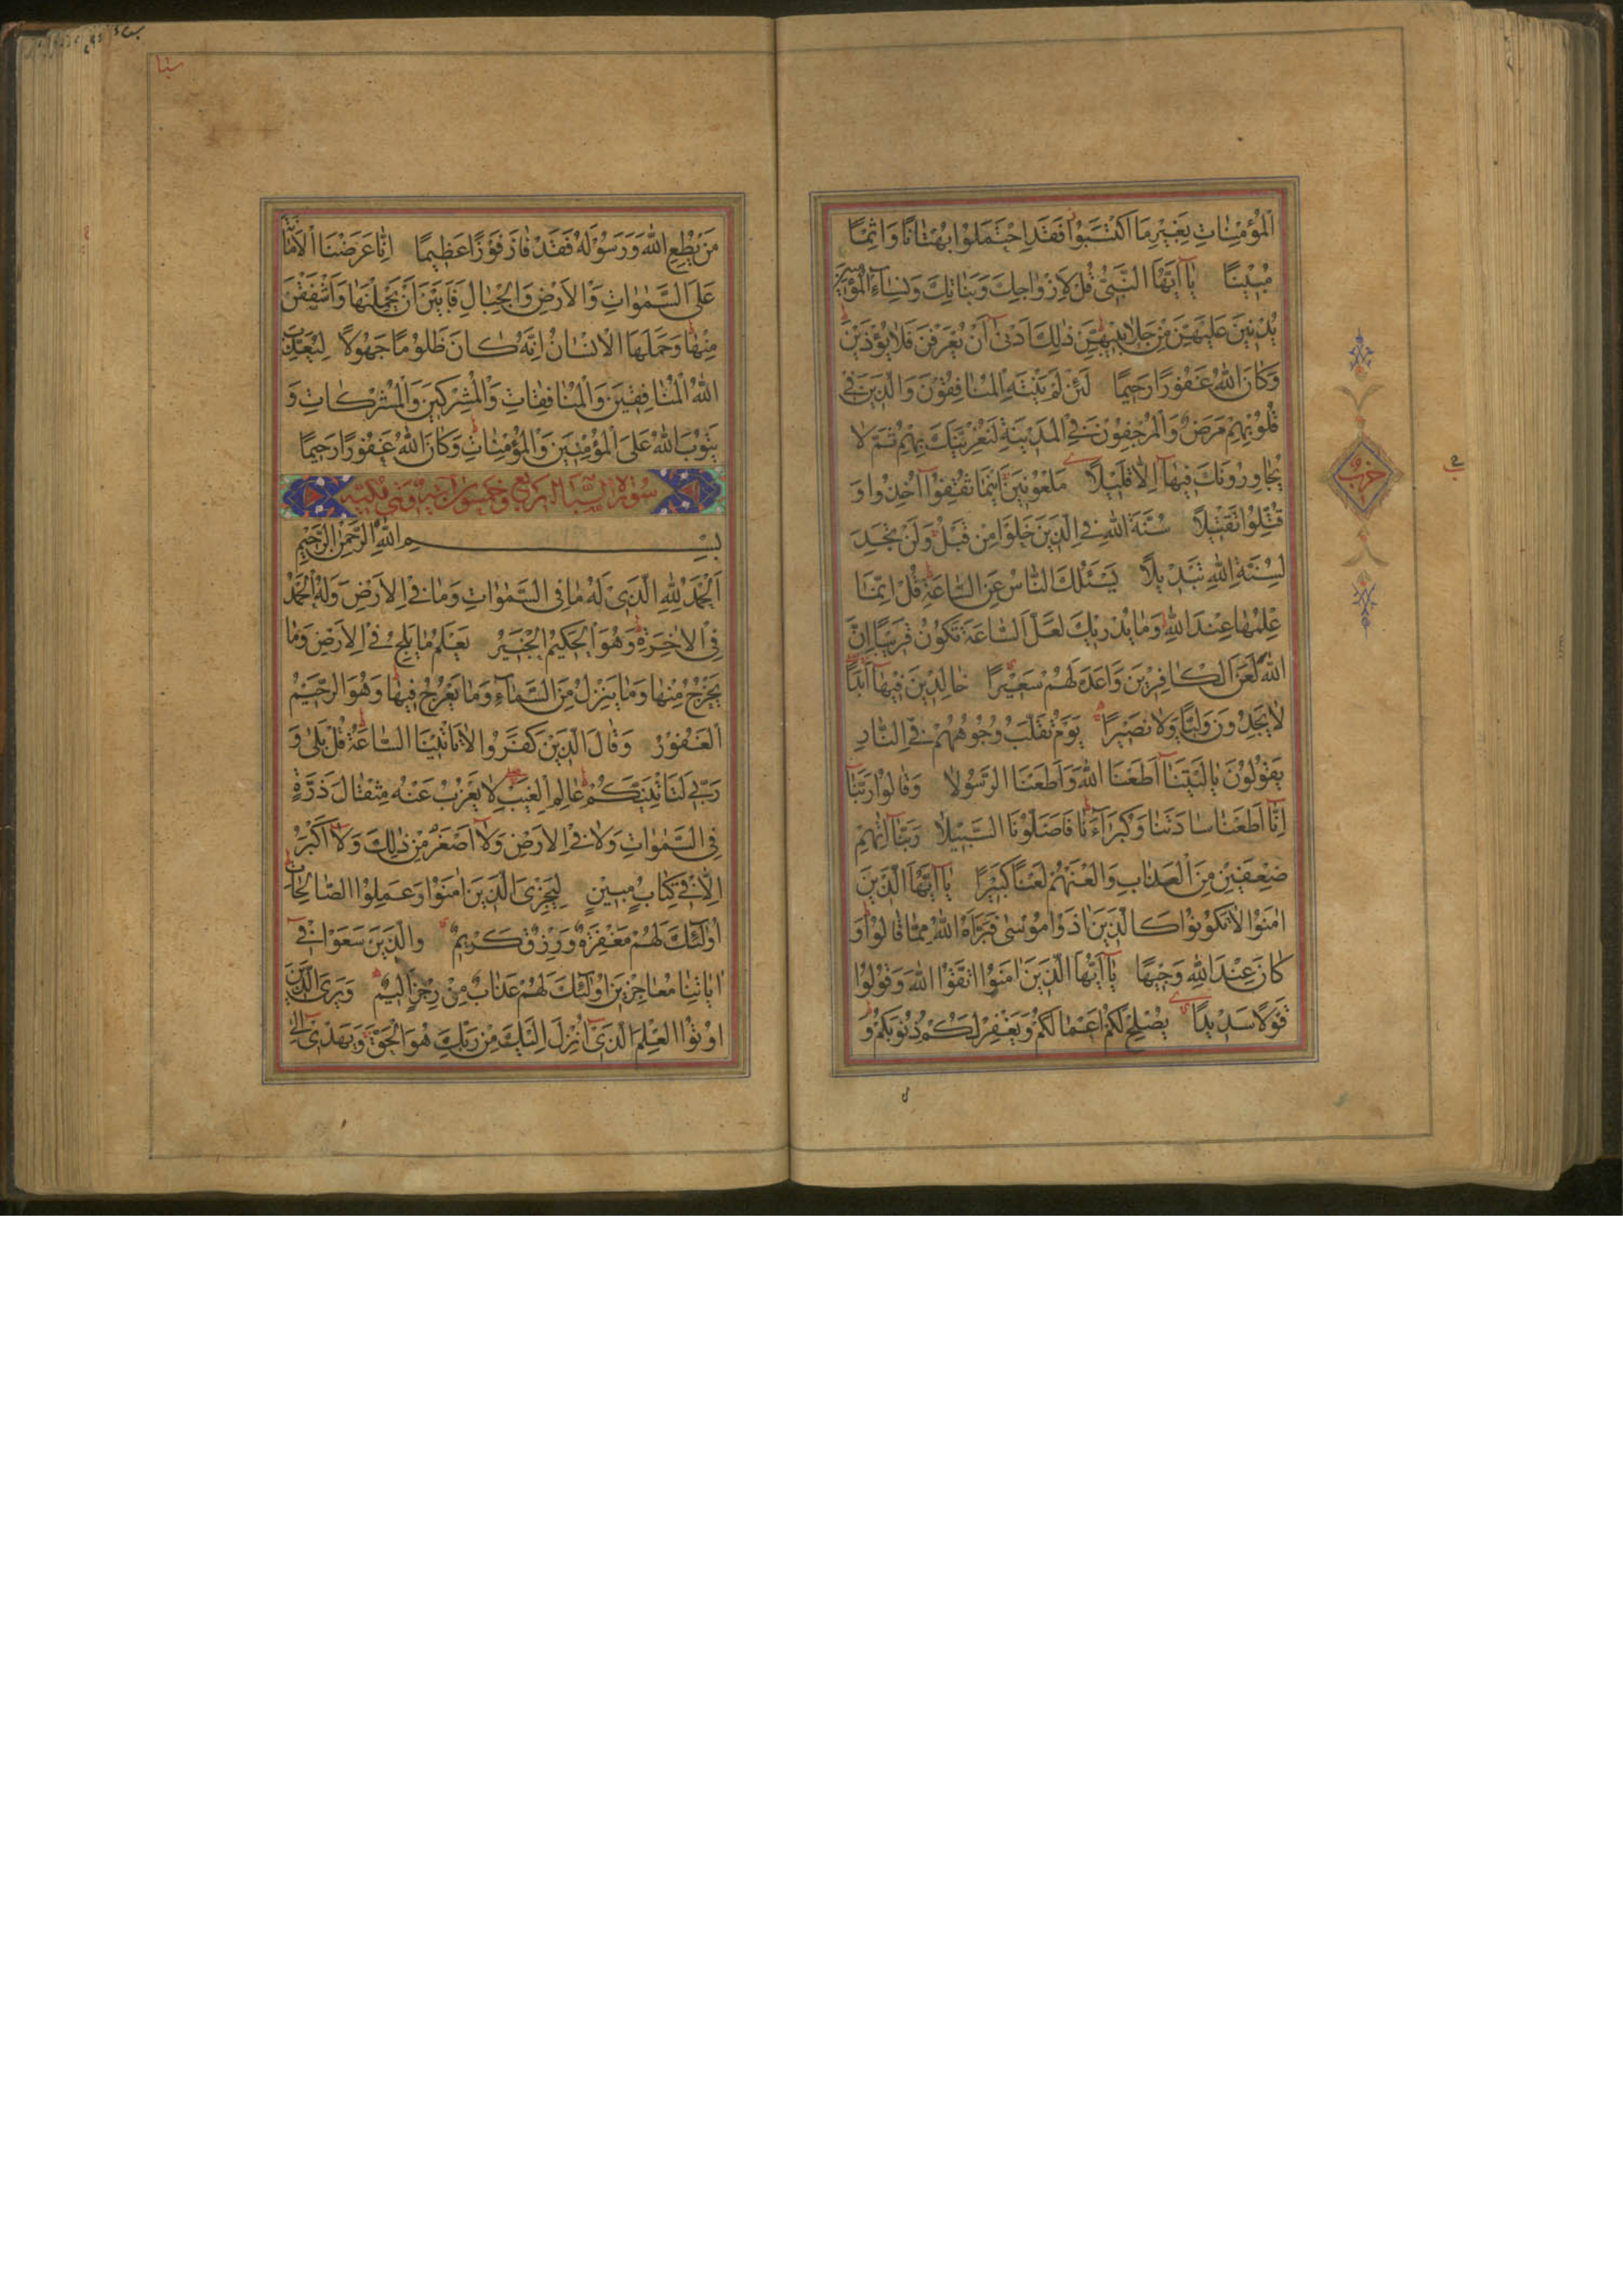 الْمُؤْمِنَاتِ بِغَيْرِ مَا اكْتَسَبُوا فَقَدِ احْتَمَلُوا بُهْتَانًا وَاِثْمًا
مُبِينًا يَا اَيُّهَا النَّبِىُّ قُلْ لِاَزْوَاجِكَ وَبَنَاتِكَ وَنِسَاءِ الْمُؤْمِنِينَ
يُدْنِينَ عَلَيْهِنَّ مِنْ جَلَابِيبِهِنَّ ذٰلِكَ اَدْنٰى اَنْ يُعْرَفْنَ فَلَا يُؤْذَيْنَ
وَكَانَ اللّٰهُ غَفُورًا رَحِيمًا لَئِنْ لَمْ يَنْتَهِ الْمُنَافِقُونَ وَالَّذِينَ فِى
قُلُوبِهِمْ مَرَضٌ وَالْمُرْجِفُونَ فِى الْمَدِينَةِ لَنُغْرِيَنَّكَ بِهِمْ ثُمَّ لَا
يُجَاوِرُونَكَ فِيهَا اِلَّا قَلِيلًا مَلْعُونِينَ اَيْنَمَا ثُقِفُوا اُخِذُوا وَ
قُتِّلُوا تَقْتِيلًا سُنَّةَ اللّٰهِ فِى الَّذِينَ خَلَوْا مِنْ قَبْلُ وَلَنْ تَجِدَ
لِسُنَّةِ اللّٰهِ تَبْدِيلًا يَسْئَلُكَ النَّاسُ عَنِ السَّاعَةِ قُلْ اِنَّمَا
عِلْمُهَا عِنْدَ اللّٰهِ وَمَا يُدْرِيكَ لَعَلَّ السَّاعَةَ تَكُونُ قَرِيبًا اِنَّ
اللّٰهَ لَعَنَ الْكَافِرِينَ وَاَعَدَّ لَهُمْ سَعِيرًا خَالِدِينَ فِيهَا اَبَدًا
لَا يَجِدُونَ وَلِيًّا وَلَا نَصِيرًا يَوْمَ تُقَلَّبُ وُجُوهُهُمْ فِى النَّارِ
يَقُولُونَ يَا لَيْتَنَا اَطَعْنَا اللّٰهَ وَاَطَعْنَا الرَّسُولَا وَقَالُوا رَبَّنَا
اِنَّا اَطَعْنَا سَادَتَنَا وَكُبَرَاءَنَا فَاَضَلُّونَا السَّبِيلَا رَبَّنَا اٰتِهِمْ
ضِعْفَيْنِ مِنَ الْعَذَابِ وَالْعَنْهُمْ لَعْنًا كَبِيرًا يَا اَيُّهَا الَّذِينَ
اٰمَنُوا لَا تَكُونُوا كَالَّذِينَ اٰذَوْا مُوسٰى فَبَرَّاَهُ اللّٰهُ مِمَّا قَالُوا وَ
كَانَ عِنْدَ اللّٰهِ وَجِيهًا يَا اَيُّهَا الَّذِينَ اٰمَنُوا اتَّقُوا اللّٰهَ وَقُولُوا
قَوْلًا سَدِيدًا يُصْلِحْ لَكُمْ اَعْمَالَكُمْ وَيَغْفِرْ لَكُمْ ذُنُوبَكُمْ وَ
حزب
سبا
مَنْ يُطِعِ اللّٰهَ وَرَسُولَهُ فَقَدْ فَازَ فَوْزًا عَظِيمًا اِنَّا عَرَضْنَا الْاَمَانَةَ
عَلَى السَّمٰوَاتِ وَالْاَرْضِ وَالْجِبَالِ فَاَبَيْنَ اَنْ يَحْمِلْنَهَا وَاَشْفَقْنَ
مِنْهَا وَحَمَلَهَا الْاِنْسَانُ اِنَّهُ كَانَ ظَلُومًا جَهُولًا لِيُعَذِّبَ
اللّٰهُ الْمُنَافِقِينَ وَالْمُنَافِقَاتِ وَالْمُشْرِكِينَ وَالْمُشْرِكَاتِ وَ
يَتُوبَ اللّٰهُ عَلَى الْمُؤْمِنِينَ وَالْمُؤْمِنَاتِ وَكَانَ اللّٰهُ غَفُورًا رَحِيمًا
سورة السبا اربع وخمسون اية وهي مكية
بِسْمِ اللّٰهِ الرَّحْمٰنِ الرَّحِيمِ
اَلْحَمْدُ لِلّٰهِ الَّذِى لَهُ مَا فِى السَّمٰوَاتِ وَمَا فِى الْاَرْضِ وَلَهُ الْحَمْدُ
فِى الْاٰخِرَةِ وَهُوَ الْحَكِيمُ الْخَبِيرُ يَعْلَمُ مَا يَلِجُ فِى الْاَرْضِ وَمَا
يَخْرُجُ مِنْهَا وَمَا يَنْزِلُ مِنَ السَّمَاءِ وَمَا يَعْرُجُ فِيهَا وَهُوَ الرَّحِيمُ
الْغَفُورُ وَقَالَ الَّذِينَ كَفَرُوا لَا تَاْتِينَا السَّاعَةُ قُلْ بَلٰى وَ
رَبِّى لَتَاْتِيَنَّكُمْ عَالِمِ الْغَيْبِ لَا يَعْزُبُ عَنْهُ مِثْقَالُ ذَرَّةٍ
فِى السَّمٰوَاتِ وَلَا فِى الْاَرْضِ وَلَا اَصْغَرُ مِنْ ذٰلِكَ وَلَا اَكْبَرُ
اِلَّا فِى كِتَابٍ مُبِينٍ لِيَجْزِىَ الَّذِينَ اٰمَنُوا وَعَمِلُوا الصَّالِحَاتِ
اُولٰئِكَ لَهُمْ مَغْفِرَةٌ وَرِزْقٌ كَرِيمٌ وَالَّذِينَ سَعَوْا فِى
اٰيَاتِنَا مُعَاجِزِينَ اُولٰئِكَ لَهُمْ عَذَابٌ مِنْ رِجْزٍ اَلِيمٌ وَيَرَى الَّذِينَ
اُوتُوا الْعِلْمَ الَّذِى اُنْزِلَ اِلَيْكَ مِنْ رَبِّكَ هُوَ الْحَقَّ وَيَهْدِى اِلٰى